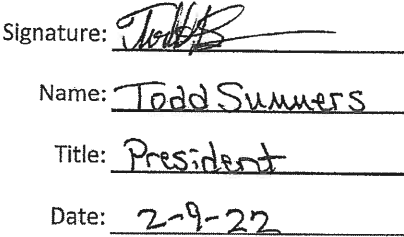 Signature: Todd S
Name: Todd Summers
Title: President
Date: 2-9-22